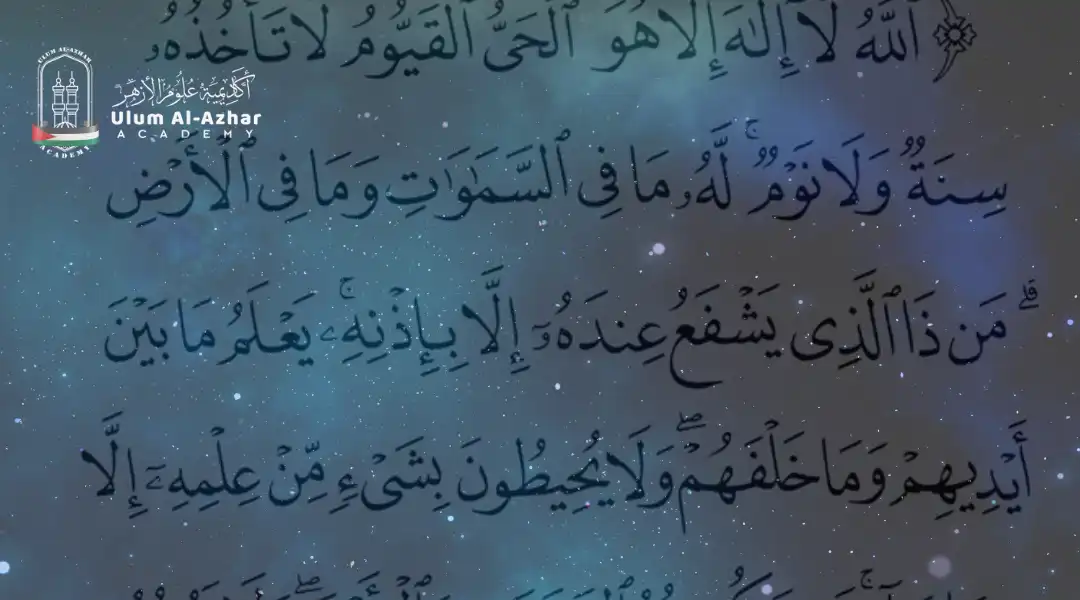 ULUM AL-AZHAR
ACADEMY
أكاديمية علوم الأزهر
Ulum Al-Azhar
ACADEMY
﴿ ٱللَّهُ لَآ إِلَٰهَ إِلَّا هُوَ ٱلْحَىُّ ٱلْقَيُّومُ لَا تَأْخُذُهُۥ
سِنَةٌ وَلَا نَوْمٌ ۚ لَّهُۥ مَا فِى ٱلسَّمَٰوَٰتِ وَمَا فِى ٱلْأَرْضِ
ۗ مَن ذَا ٱلَّذِى يَشْفَعُ عِندَهُۥٓ إِلَّا بِإِذْنِهِۦ ۚ يَعْلَمُ مَا بَيْنَ
أَيْدِيهِمْ وَمَا خَلْفَهُمْ ۖ وَلَا يُحِيطُونَ بِشَىْءٍ مِّنْ عِلْمِهِۦٓ إِلَّا